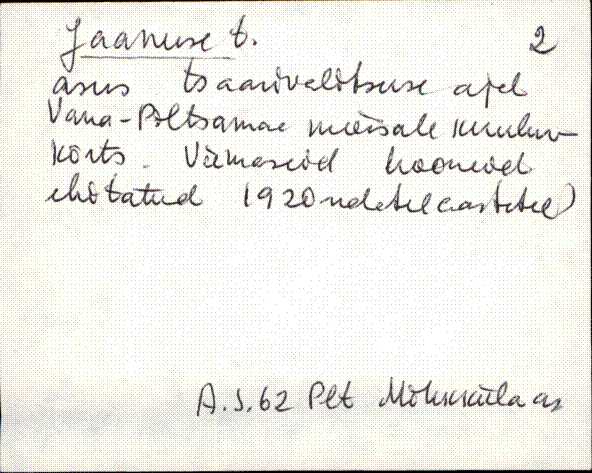 Jaanuse t. 2
asus tsaarivalitsuse ajal
Vana-Põltsamaa mõisale kuuluv
kõrts. Viimaseid hooneid
ehitatud 1920ndatel aastatel)
A.S.62 Plt Mõhküla as